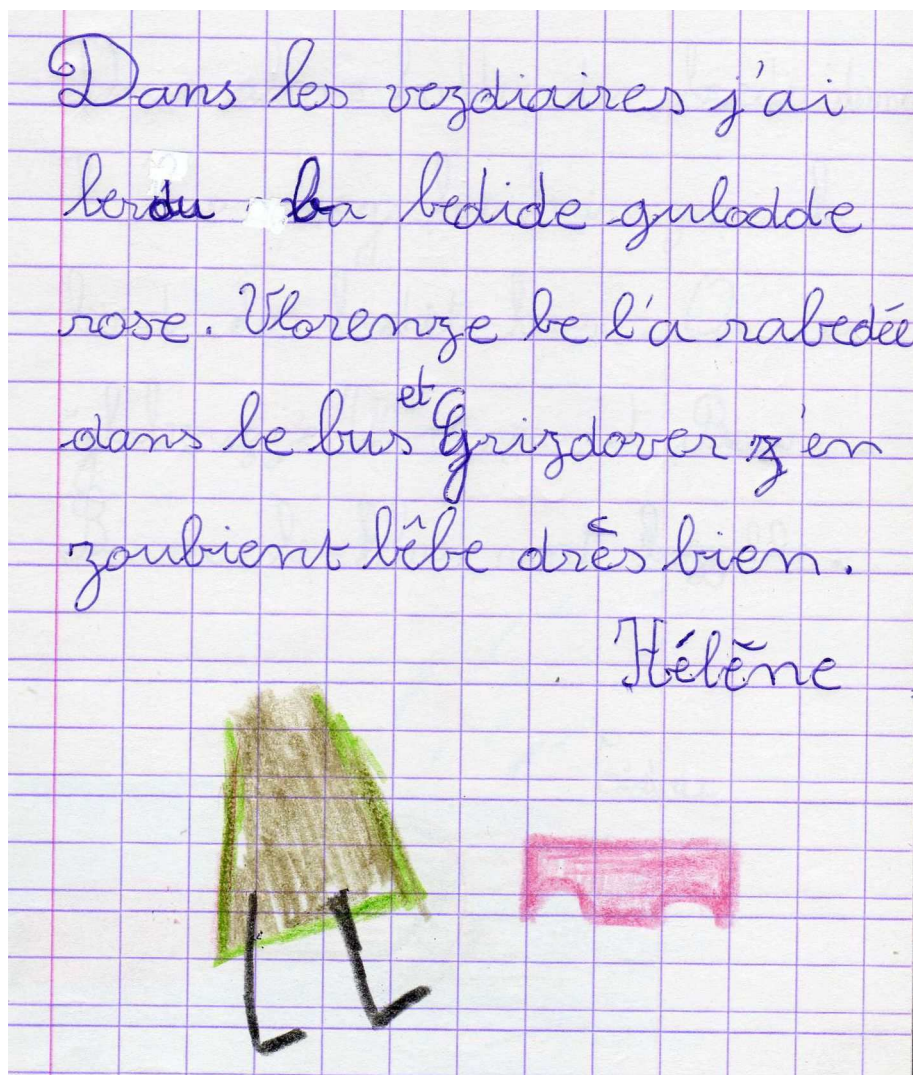 Dans les vezdiaires j'ai
berdu ba bedide gulodde
rose. Vlorenze be l'a rabedée
dans le bus et Grizdover z'en
zoubient bêbe drès bien.
Hélène